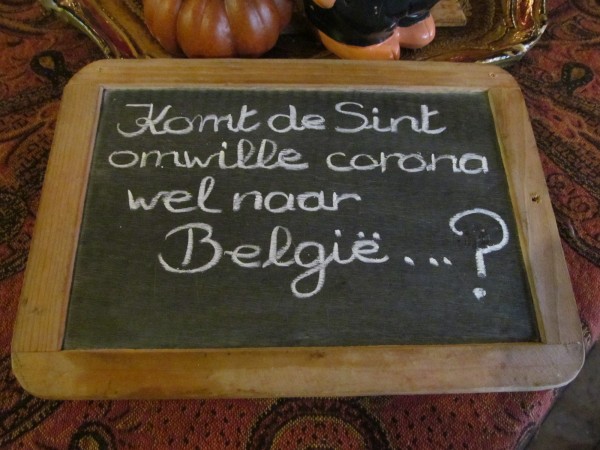 Komt de Sint
omwille corona
wel naar
België...?